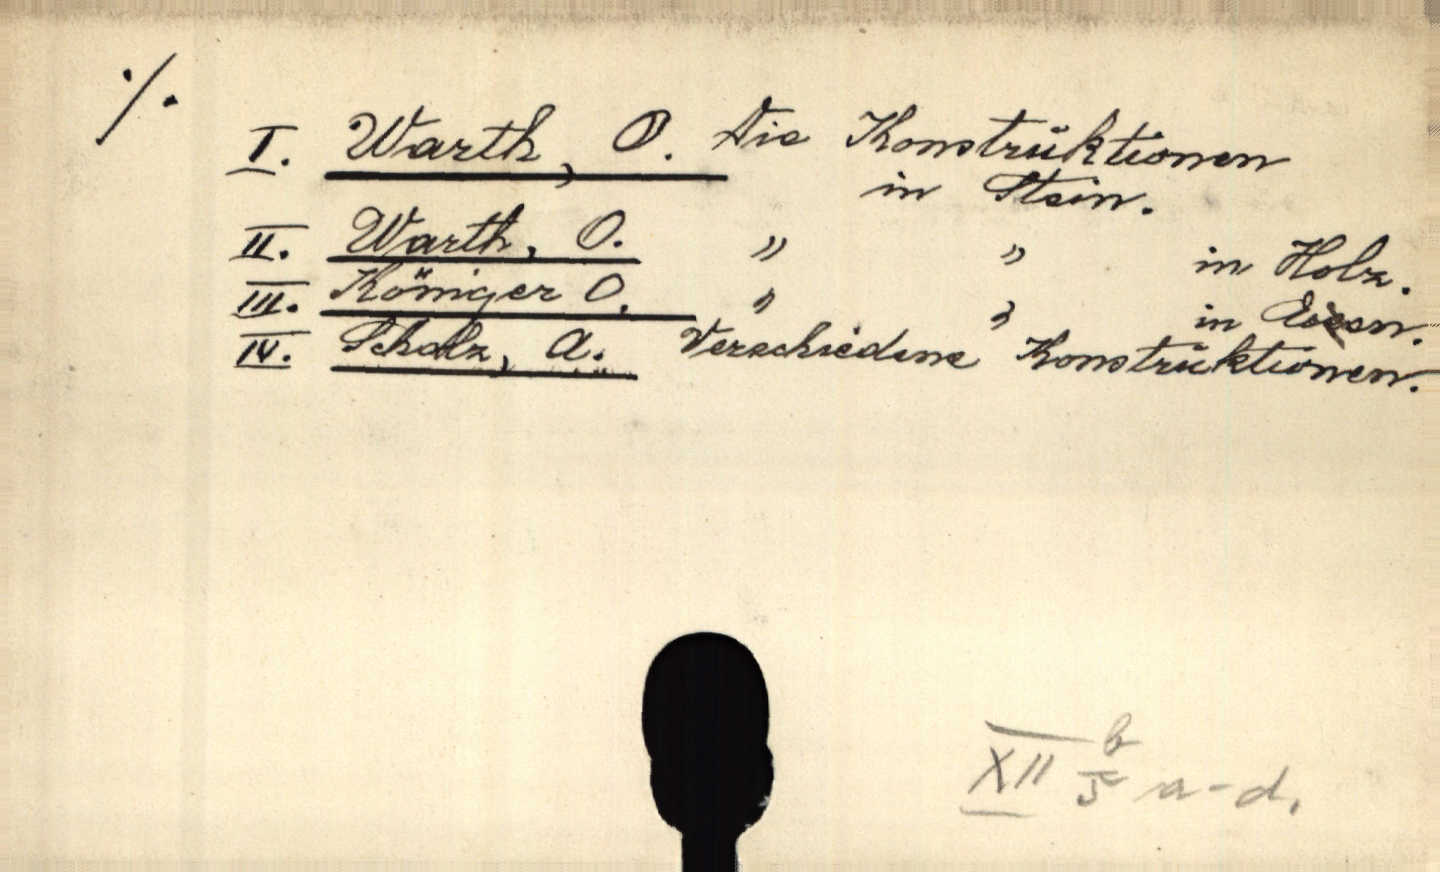 ·/.
I. Warth, O. Die Konstruktionen
in Stein.
II. Warth, O. " " in Holz.
III. Königer O. " " in Eisen.
IV. Scholz, A. Verschiedene Konstruktionen.
XII b/5 a-d.